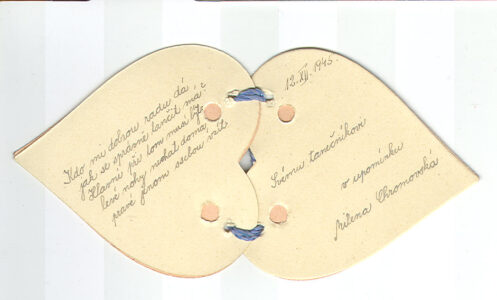 Kdo mi dobrou radu dá
jak se správně tančit má?
Hlavně při tom musí být
levé nohy nechat doma,
pravé jenom sebou vzít.
12. XII. 1945.
Svému tanečníkovi
v upomínku
Milena Chromovská